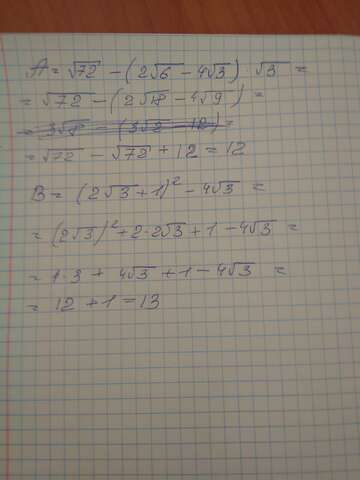 A = √72 - (2√6 - 4√3) √3 =
= √72 - (2√18 - 4√9) =
= 3√8 - (3√2 - 12) =
= √72 - √72 + 12 = 12
B = (2√3 + 1)² - 4√3 =
= (2√3)² + 2·2√3 + 1 - 4√3 =
= 4·3 + 4√3 + 1 - 4√3 =
= 12 + 1 = 13